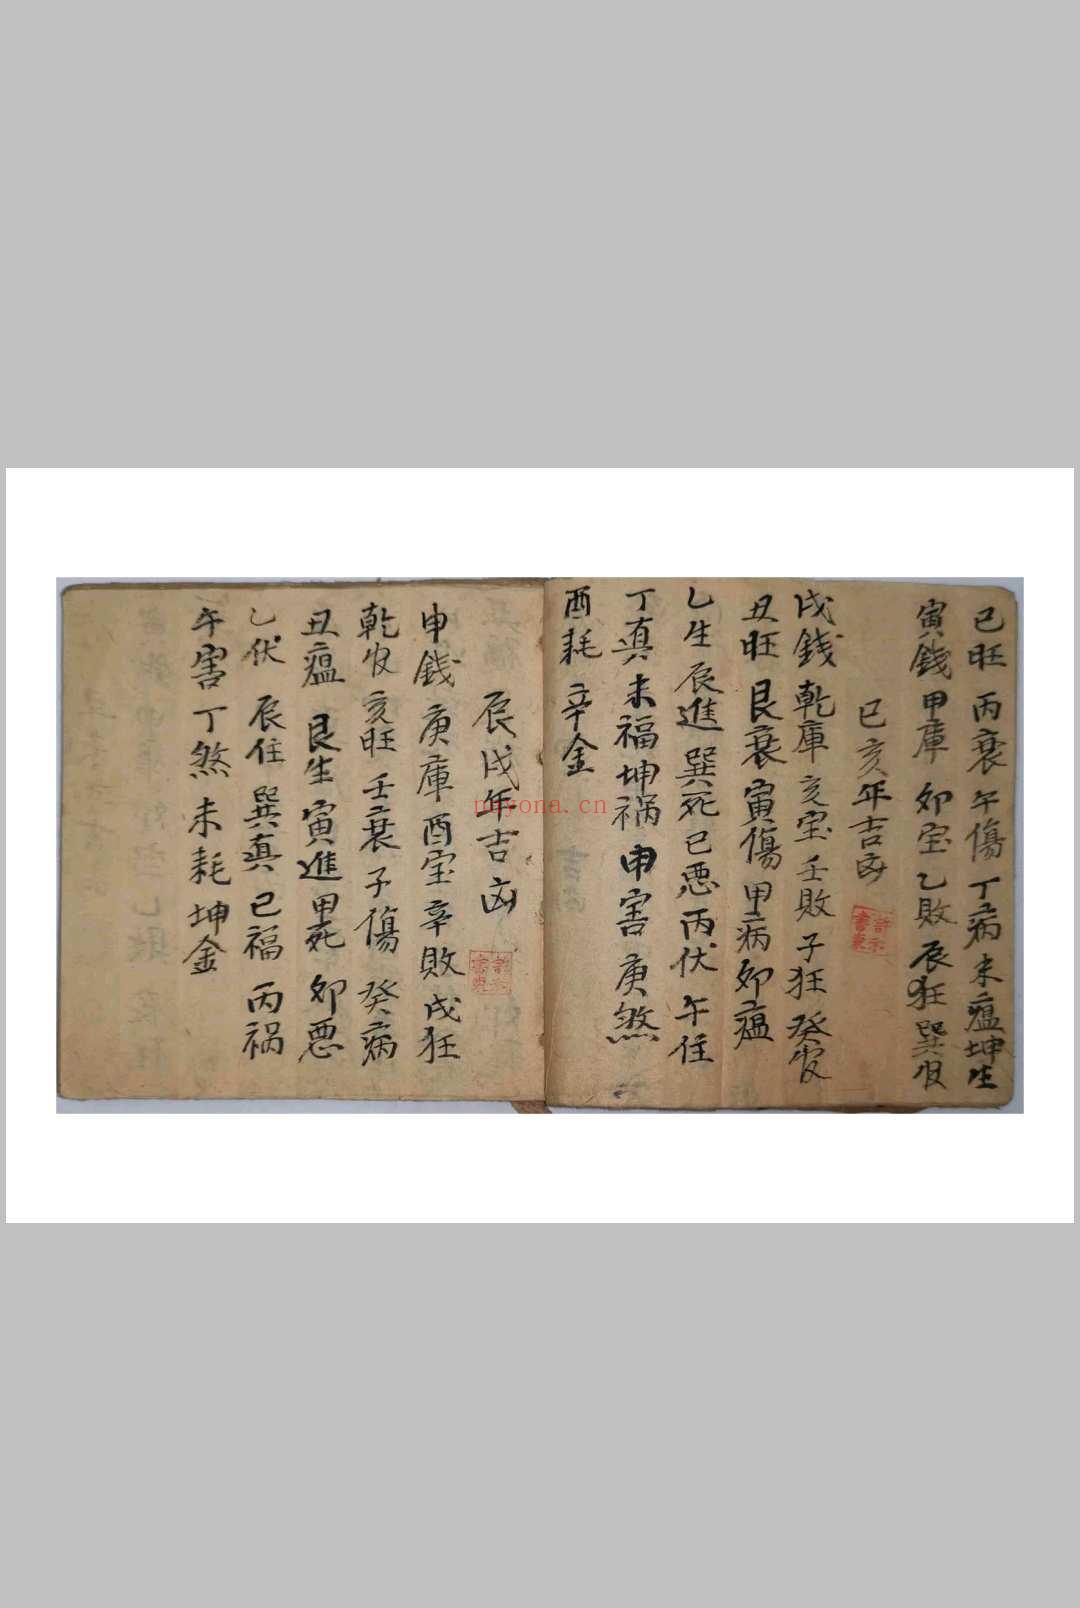 巳旺 丙衰 午傷 丁病 未瘟 坤生
寅錢 甲庫 卯宝 乙敗 辰狂 巽㞋
巳亥年吉凶
戌錢 乾庫 亥宝 壬敗 子狂 癸㞋
丑旺 艮衰 寅傷 甲病 卯瘟
乙生 辰進 巽死 巳悪 丙伏 午住
丁真 未福 坤祸 申害 庚煞
酉耗 辛金
辰戌年吉凶
申錢 庚庫 酉宝 辛敗 戌狂
乾㞋 亥旺 壬衰 子傷 癸病
丑瘟 艮生 寅進 甲死 卯悪
乙伏 辰住 巽真 巳福 丙祸
午害 丁煞 未耗 坤金
nayona.cn